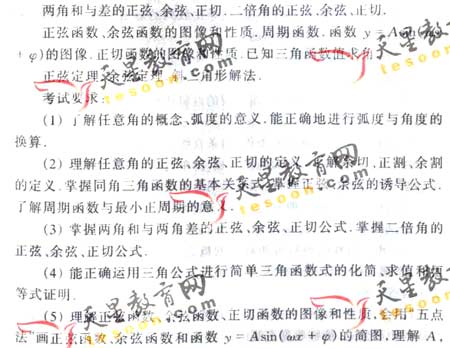 两角和与差的正弦、余弦、正切.二倍角的正弦、余弦、正切.
正弦函数、余弦函数的图像和性质.周期函数.函数 y = Asin(
+ φ)的图像.正切函数的图像和性质.已知三角函数值求角.
正弦定理.余弦定理.斜三角形解法.
考试要求:
(1) 了解任意角的概念、弧度的意义.能正确地进行弧度与角度的
换算.
(2) 理解任意角的正弦、余弦、正切的定义.了解余切、正割、余割
的定义.掌握同角三角函数的基本关系式.掌握正弦、余弦的诱导公式.
了解周期函数与最小正周期的意义.
(3) 掌握两角和与两角差的正弦、余弦、正切公式.掌握二倍角的
正弦、余弦、正切公式.
(4) 能正确运用三角公式进行简单三角函数式的化简、求值和恒
等式证明.
(5) 理解正弦函数、余弦函数、正切函数的图像和性质,会用“五点
法”画正弦函数、余弦函数和函数 y = Asin(ωx + φ)的简图,理解 A,
天星教育网
tesoon.com
天星教
tesoon
天星教育网
tesoon.com
天星教育网
tesoon.com
天星教
tesoon